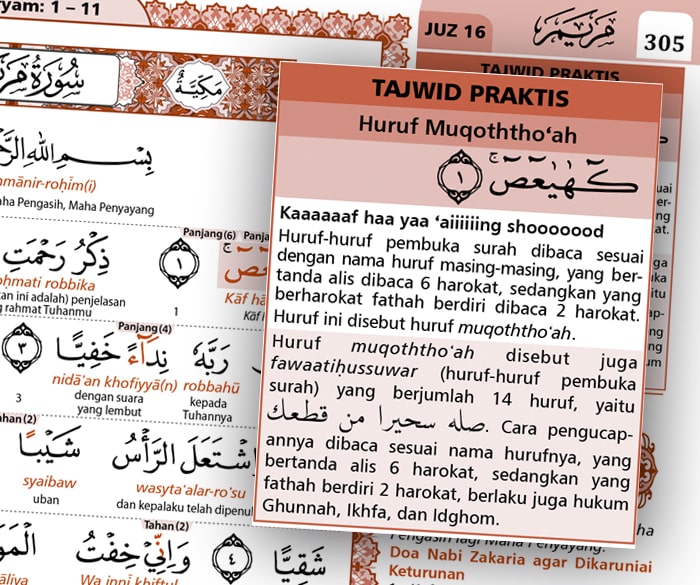 yam: 1 – 11
JUZ 16
مريم
305
TAJWID PRAKTIS
سورة مر
مكية
TAJWID PRAKTIS
Huruf Muqoththo‘ah
كۤهٰيٰعۤصۤ ۚ ١
Kaaaaaaf haa yaa ‘aiiiiiing shooooood
Huruf-huruf pembuka surah dibaca sesuai
dengan nama huruf masing-masing, yang ber-
tanda alis dibaca 6 harokat, sedangkan yang
berharokat fathah berdiri dibaca 2 harokat.
Huruf ini disebut huruf muqoththo‘ah.
Huruf muqoththo‘ah disebut juga
fawaatiḥussuwar (huruf-huruf pembuka
surah) yang berjumlah 14 huruf, yaitu
صله سحيرا من قطعك. Cara pengucap-
annya dibaca sesuai nama hurufnya, yang
bertanda alis 6 harokat, sedangkan yang
fathah berdiri 2 harokat, berlaku juga hukum
Ghunnah, Ikhfa, dan Idghom.
بِسْمِ اللّٰهِ الرَّحْ
mānir-roḥīm(i)
ha Pengasih, Maha Penyayang
Panjang(6) Panja
ذِكْرُ رَحْمَتِ ١ عۤصۤ ۚ
oḥmati robbika 1 Kāf hā
an ini adalah) penjelasan Kāf
g rahmat Tuhanmu
Panjang(4)
رَبَّهٗ نِدَاۤءً خَفِيًّا ٣
nidā'an khofiyyā(n) robbahū
3 dengan suara kepada
yang lembut Tuhannya
ahan(2)
اشْتَعَلَ الرَّأْسُ شَيْبًا
syaibaw wasyta‘alar-ro'su
uban dan kepalaku telah dipenu
Tahan(2)
شَقِيًّا ٤ وَاِنِّيْ خِفْتُ الْمَو
āliya Wa innī khiftul
Pengasih lagi Maha Penyayang.
Doa Nabi Zakaria agar Dikaruniai
Keturunan